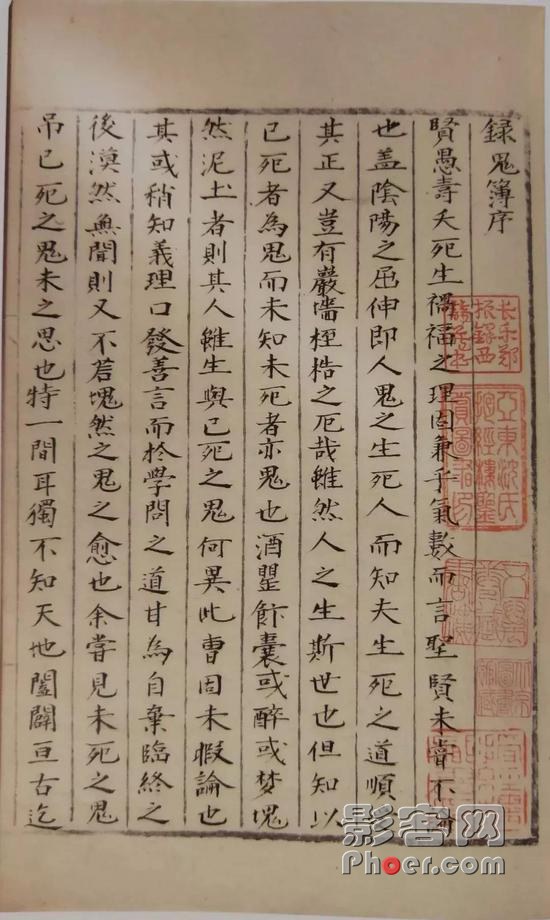 録鬼簿序
賢愚壽夭死生禍福之理固兼乎氣數而言聖賢未嘗不論
也盖陰陽之屈伸即人鬼之生死人而知夫生死之道順受
其正又豈有巖墻桎梏之厄哉雖然人之生斯世也但知以
已死者為鬼而未知未死者亦鬼也酒罌飰囊或醉或梦塊
然泥土者則其人雖生與已死之鬼何異此曹固未暇論也
其或稍知義理口發善言而於學問之道甘為自棄臨終之
後漠然無聞則又不若塊然之鬼之愈也余嘗見未死之鬼
吊已死之鬼未之思也特一間耳獨不知天地闔闢亘古迄
長樂鄭
振鐸西
諦藏書
亞東沈氏
抱經樓鑒
賞圖書印
影客网
Phoer.com